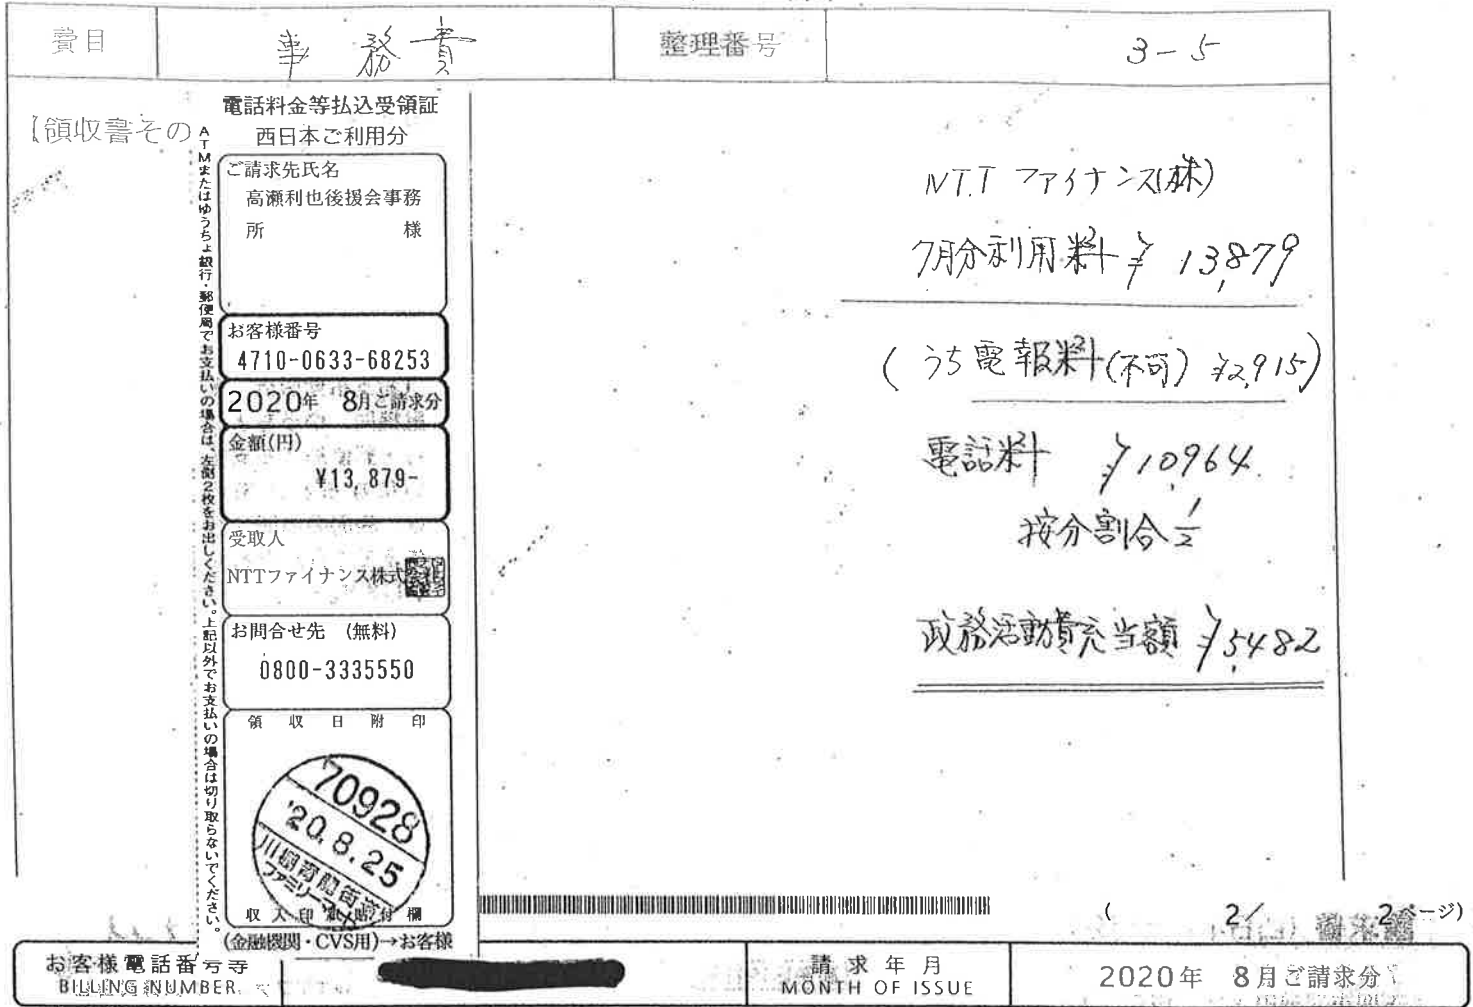 費目 事務費 整理番号 3-5
【領収書その
電話料金等払込受領証
西日本ご利用分
ATMまたはゆうちょ銀行・郵便局でお支払いの場合は、左側2枚をお出しください。上記以外でお支払いの場合は切り取らないでください。
ご請求先氏名
高瀬利也後援会事務
所 様
お客様番号
4710-0633-68253
2020年 8月ご請求分
金額(円)
¥13,879-
受取人
NTTファイナンス株式
お問合せ先 (無料)
0800-3335550
領収日附印
70928
'20.8.25
ファミリーマート
収入印紙貼付欄
(金融機関・CVS用)→お客様
NTTファイナンス(株)
7月分利用料 ¥13,879
(うち電報料(不可) ¥2,915)
電話料 ¥10,964
按分割合 1/2
政務活動費充当額 ¥5,482
( 2/ 2ページ)
お客様電話番号等
BILLING NUMBER
請求年月
MONTH OF ISSUE
2020年 8月ご請求分